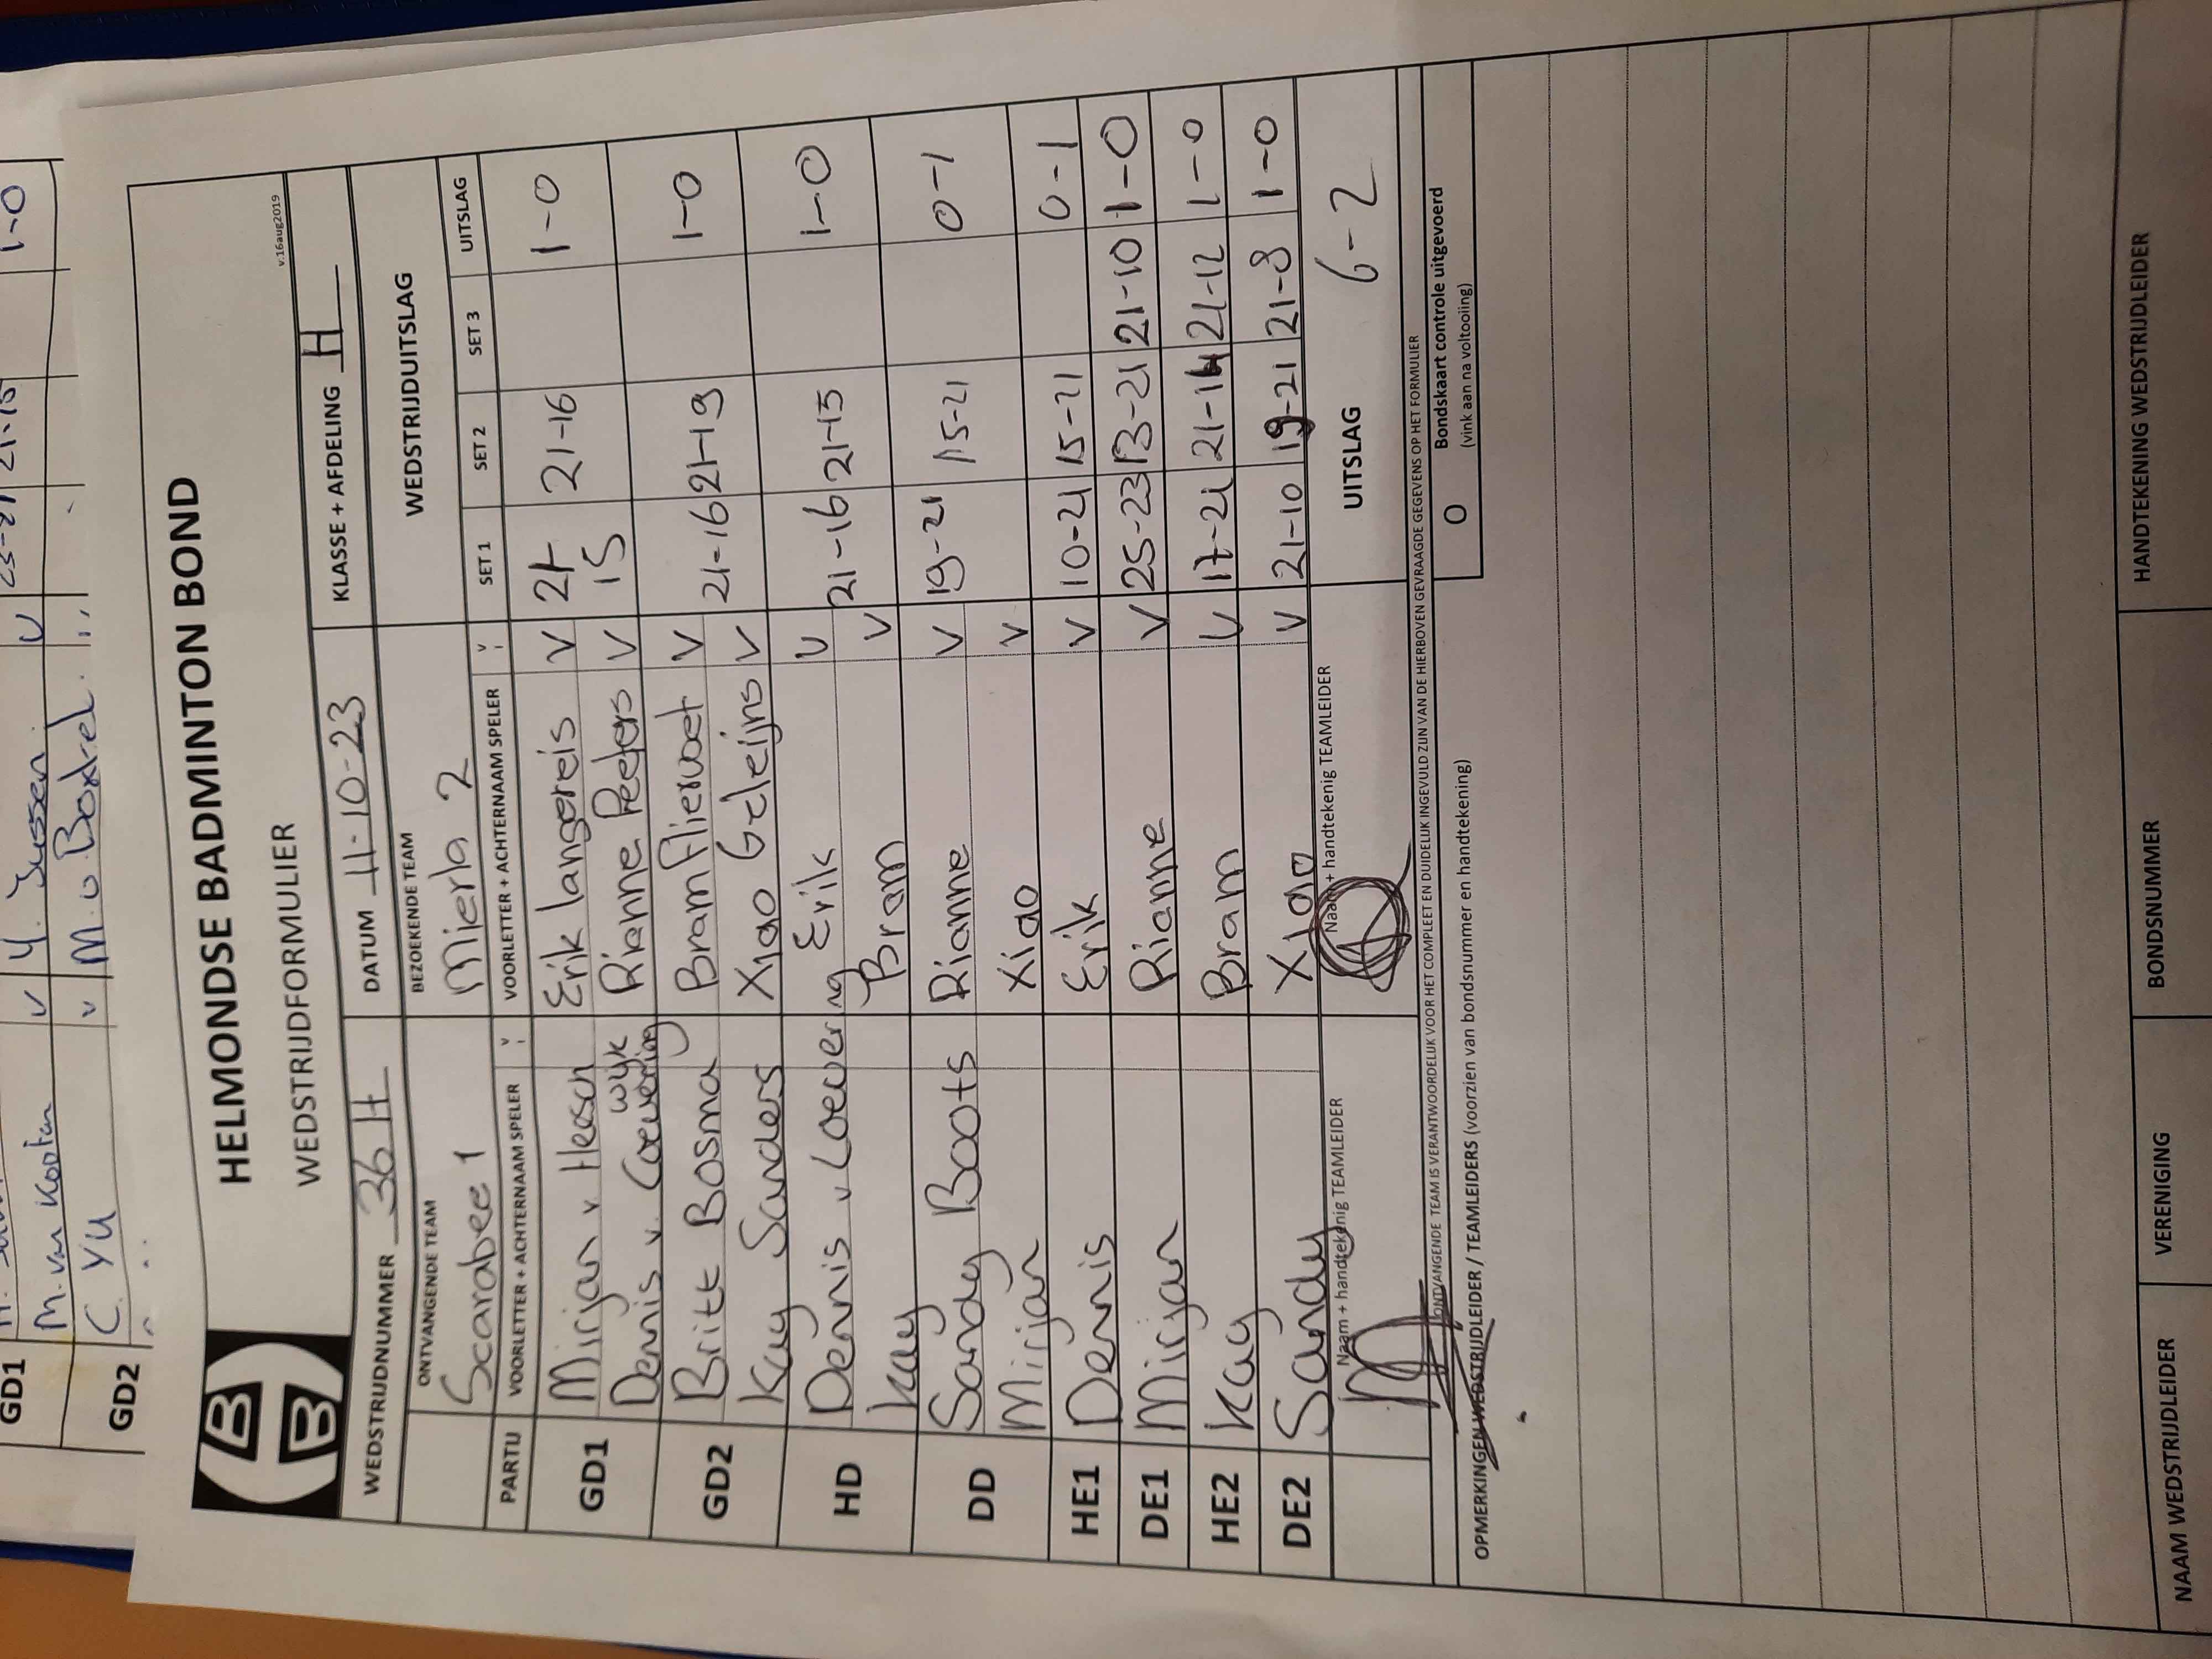 GD1
M. van Kooten v Y. Jussen v
GD2 C. YU v M. v. Boxtel
1-0
HELMONDSE BADMINTON BOND
WEDSTRIJDFORMULIER
v.16aug2019
WEDSTRIJDNUMMER 36 H DATUM 11-10-23 KLASSE + AFDELING H
ONTVANGENDE TEAM BEZOEKENDE TEAM WEDSTRIJDUITSLAG
Scarabee 1 Mierlo 2
PARTIJ VOORLETTER + ACHTERNAAM SPELER V VOORLETTER + ACHTERNAAM SPELER V SET 1 SET 2 SET 3 UITSLAG
GD1 Mirjan v Heesch Erik langereis V 21- 21-16 1-0
Dennis v. Coevering Rianne Peeters V 15
wijk
GD2 Britt Bosma Bram Fliervoet V 21-16 21-19 1-0
Kay Sanders Xiao Geleijns V
HD Dennis v Coevering Erik V 21-16 21-15 1-0
Kay Bram V
DD Sandy Boots Rianne V 19-21 15-21 0-1
Mirjan Xiao V
HE1 Dennis Erik V 10-21 15-21 0-1
DE1 Mirjan Rianne V 25-23 13-21 21-10 1-0
HE2 Kay Bram V 17-21 21-14 21-12 1-0
DE2 Sandy Xiao V 21-10 19-21 21-8 1-0
Naam + handtekenig TEAMLEIDER Naam + handtekenig TEAMLEIDER UITSLAG 6-2
ONTVANGENDE TEAM IS VERANTWOORDELIJK VOOR HET COMPLEET EN DUIDELIJK INGEVULD ZIJN VAN DE HIERBOVEN GEVRAAGDE GEGEVENS OP HET FORMULIER
O Bondskaart controle uitgevoerd
(vink aan na voltooiing)
OPMERKINGEN WEDSTRIJDLEIDER / TEAMLEIDERS (voorzien van bondsnummer en handtekening)
NAAM WEDSTRIJDLEIDER VERENIGING BONDSNUMMER HANDTEKENING WEDSTRIJDLEIDER